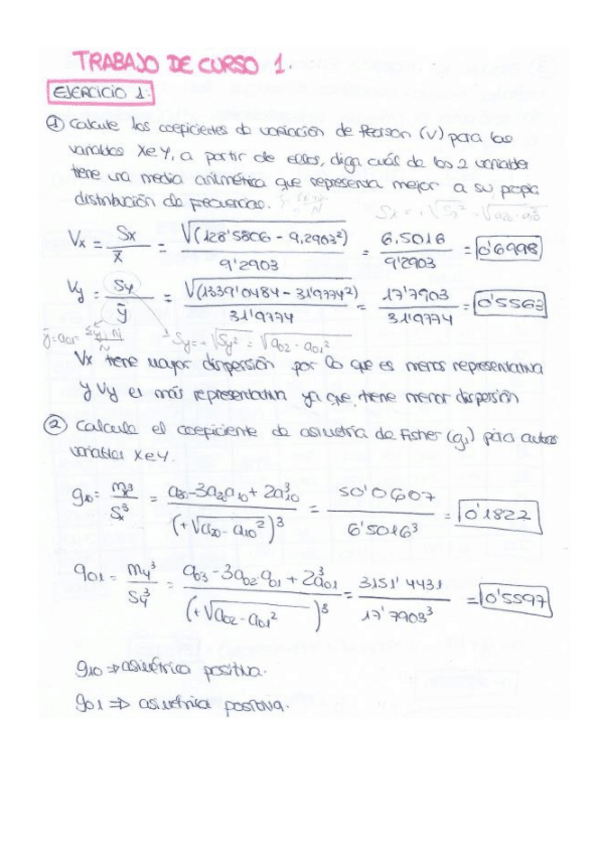 TRABAJO DE CURSO 1.
EJERCICIO 1:
① Calcule los coeficientes de variación de Pearson (V) para las
variables X e Y, a partir de ellos, diga cuál de las 2 variables
tiene una media aritmética que representa mejor a su propia
distribución de frecuencias.
Sx = +√Sx² = √a20 - a10²
Vx = Sx / x̄ = √(128'5806 - 9,2903²) / 9'2903 = 6,5016 / 9'2903 = 0'6998
Vy = Sy / ȳ = √(1339'0484 - 31'9774²) / 31'9774 = 17'7903 / 31'9774 = 0'5563
Sy = +√Sy² = √a02 - a01²
Vx tiene mayor dispersión por lo que es menos representativa
y Vy es más representativa ya que tiene menor dispersión
② Calcula el coeficiente de asimetría de Fisher (g1) para ambas
variables X e Y.
g10 = mx³ / Sx³ = a30 - 3a20a10 + 2a10³ / (+√a20 - a10²)³ = 50'0607 / 6'5016³ = 0'1822
g01 = my³ / Sy³ = a03 - 3a02 a01 + 2a01³ / (+√a02 - a01²)³ = 3151'4431 / 17'7903³ = 0'5597
g10 ⇒ asimétrica positiva.
g01 ⇒ asimétrica positiva.